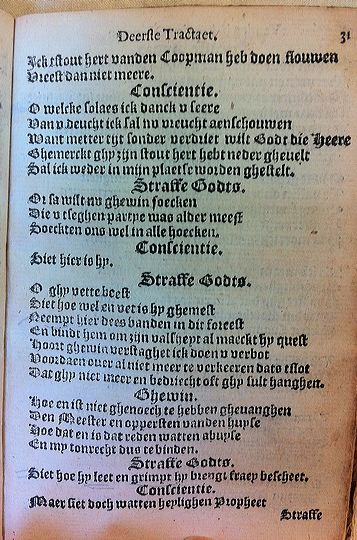 Deerste Tractaet. 31
Ick stout hert vanden Coopman heb doen flouwen
Vreest dan niet meere.
Conscientie.
O welcke solaes ick danck v seere
Van v deucht ick sal nv vreucht aenschouwen
Want metter tijt sonder verdriet wilt Godt die Heere
Ghemerckt ghy zijn stout hert hebt neder gheuelt
Sal ick weder in mijn plaetse worden ghestelt.
Straffe Godts.
Or sa wilt nv ghewin soecken
Die v tseghen partye was alder meest
Soeckten ons wel in alle hoecken.
Conscientie.
Siet hier is hy.
Straffe Godts.
O ghy vette beest
Siet hoe wel en vet is hy ghemest
Neempt hier dees banden in dit foreest
En bindt hem om zijn valsheyt al maeckt hy quest
Hoort ghewin verstaghet ick doen v verbot
Voordaen ouer al niet meer te verkeeren dats tslot
Dat ghy niet meer en bedriecht oft ghy sult hanghen.
Ghewin.
Hoe en ist niet ghenoech te hebben gheuanghen
Den Meester en oppersten vanden huyse
Hoe dat en is dat reden watten abuyse
En my tonrecht dus te binden.
Straffe Godts.
Siet hoe hy leet en grimpt hy brengt fraey bescheet.
Conscientie.
Maer siet doch watten heylighen Propheet
Straffe